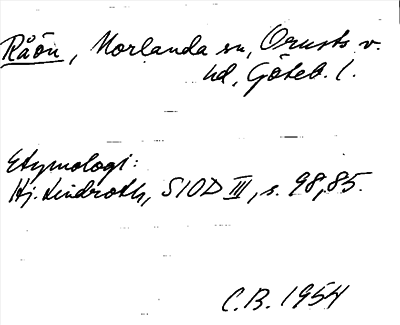 Råön, Morlanda sn, Orusts v.
hd, Göteb. l.
Etymologi:
Hj. Lindroth, SIOD III, s. 98, 85.
C.B. 1954